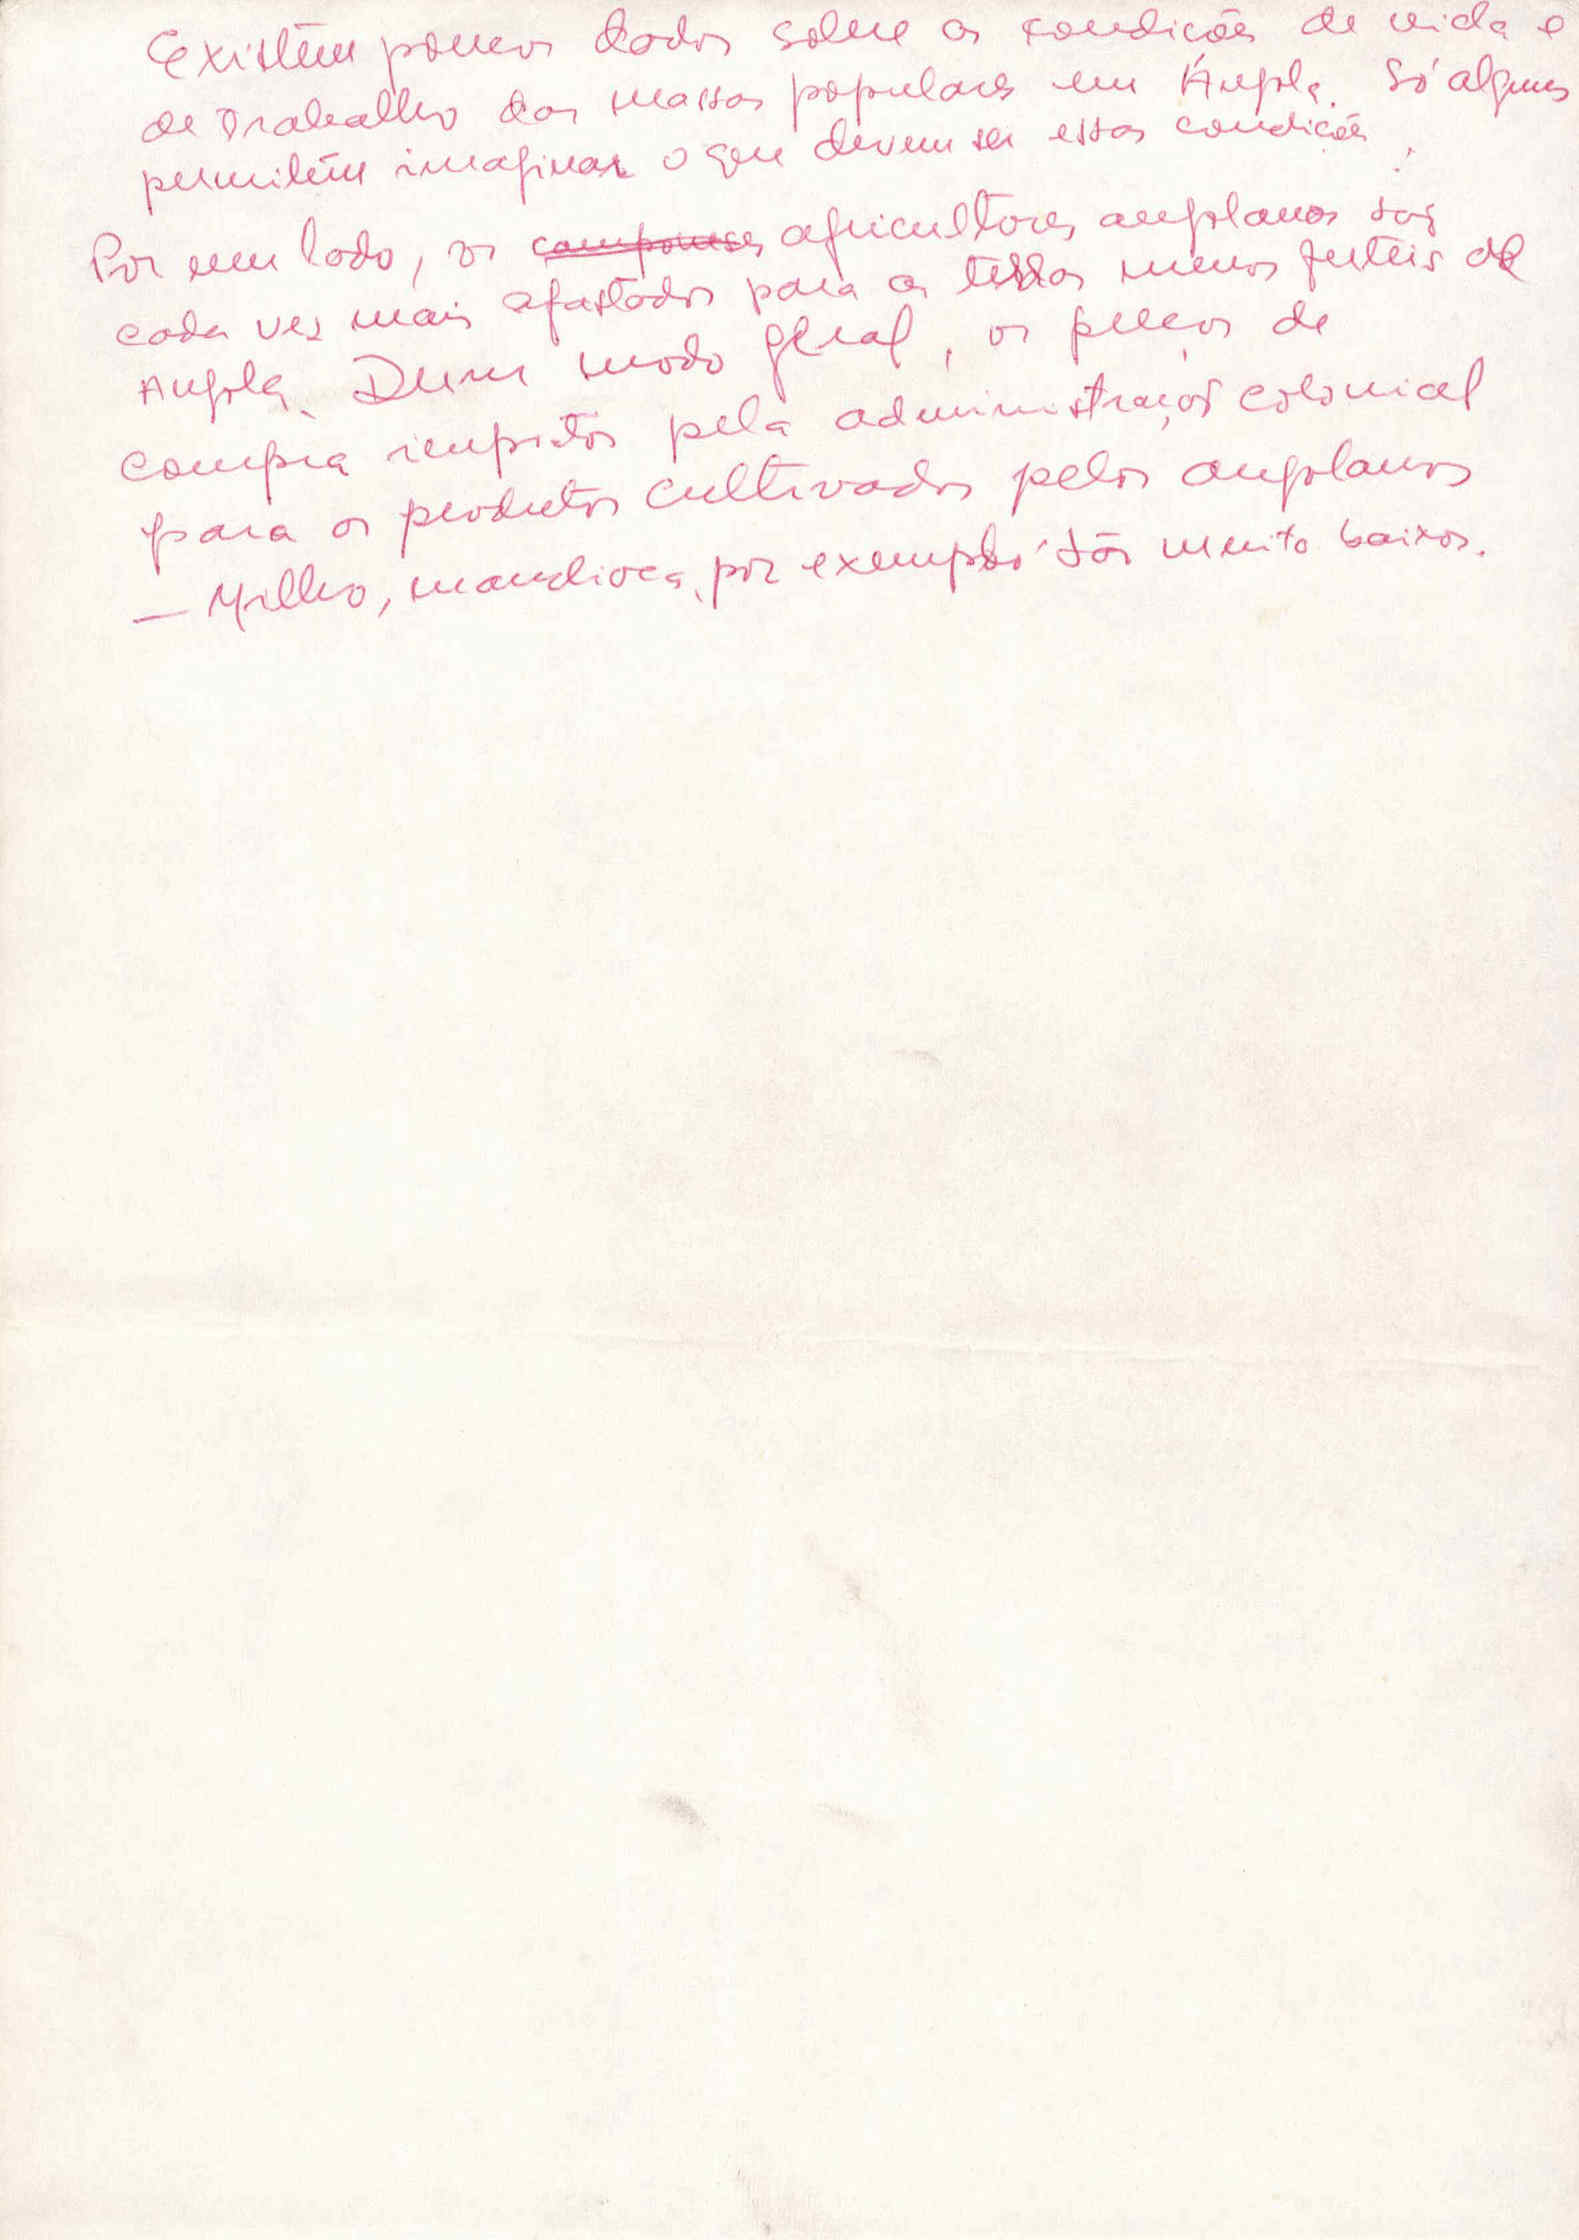 Existem poucos dados sobre as condições de vida e
de trabalho das massas populares em Angola. Só alguns
permitem imaginar o que devem ser essas condições.
Por um lado, os camponeses agricultores angolanos são
cada vez mais afastados para as terras menos ferteis de
Angola. Dum modo geral, os preços de
compra impostos pela administração colonial
para os produtos cultivados pelos angolanos
— Milho, mandioca, por exemplo são muito baixos.